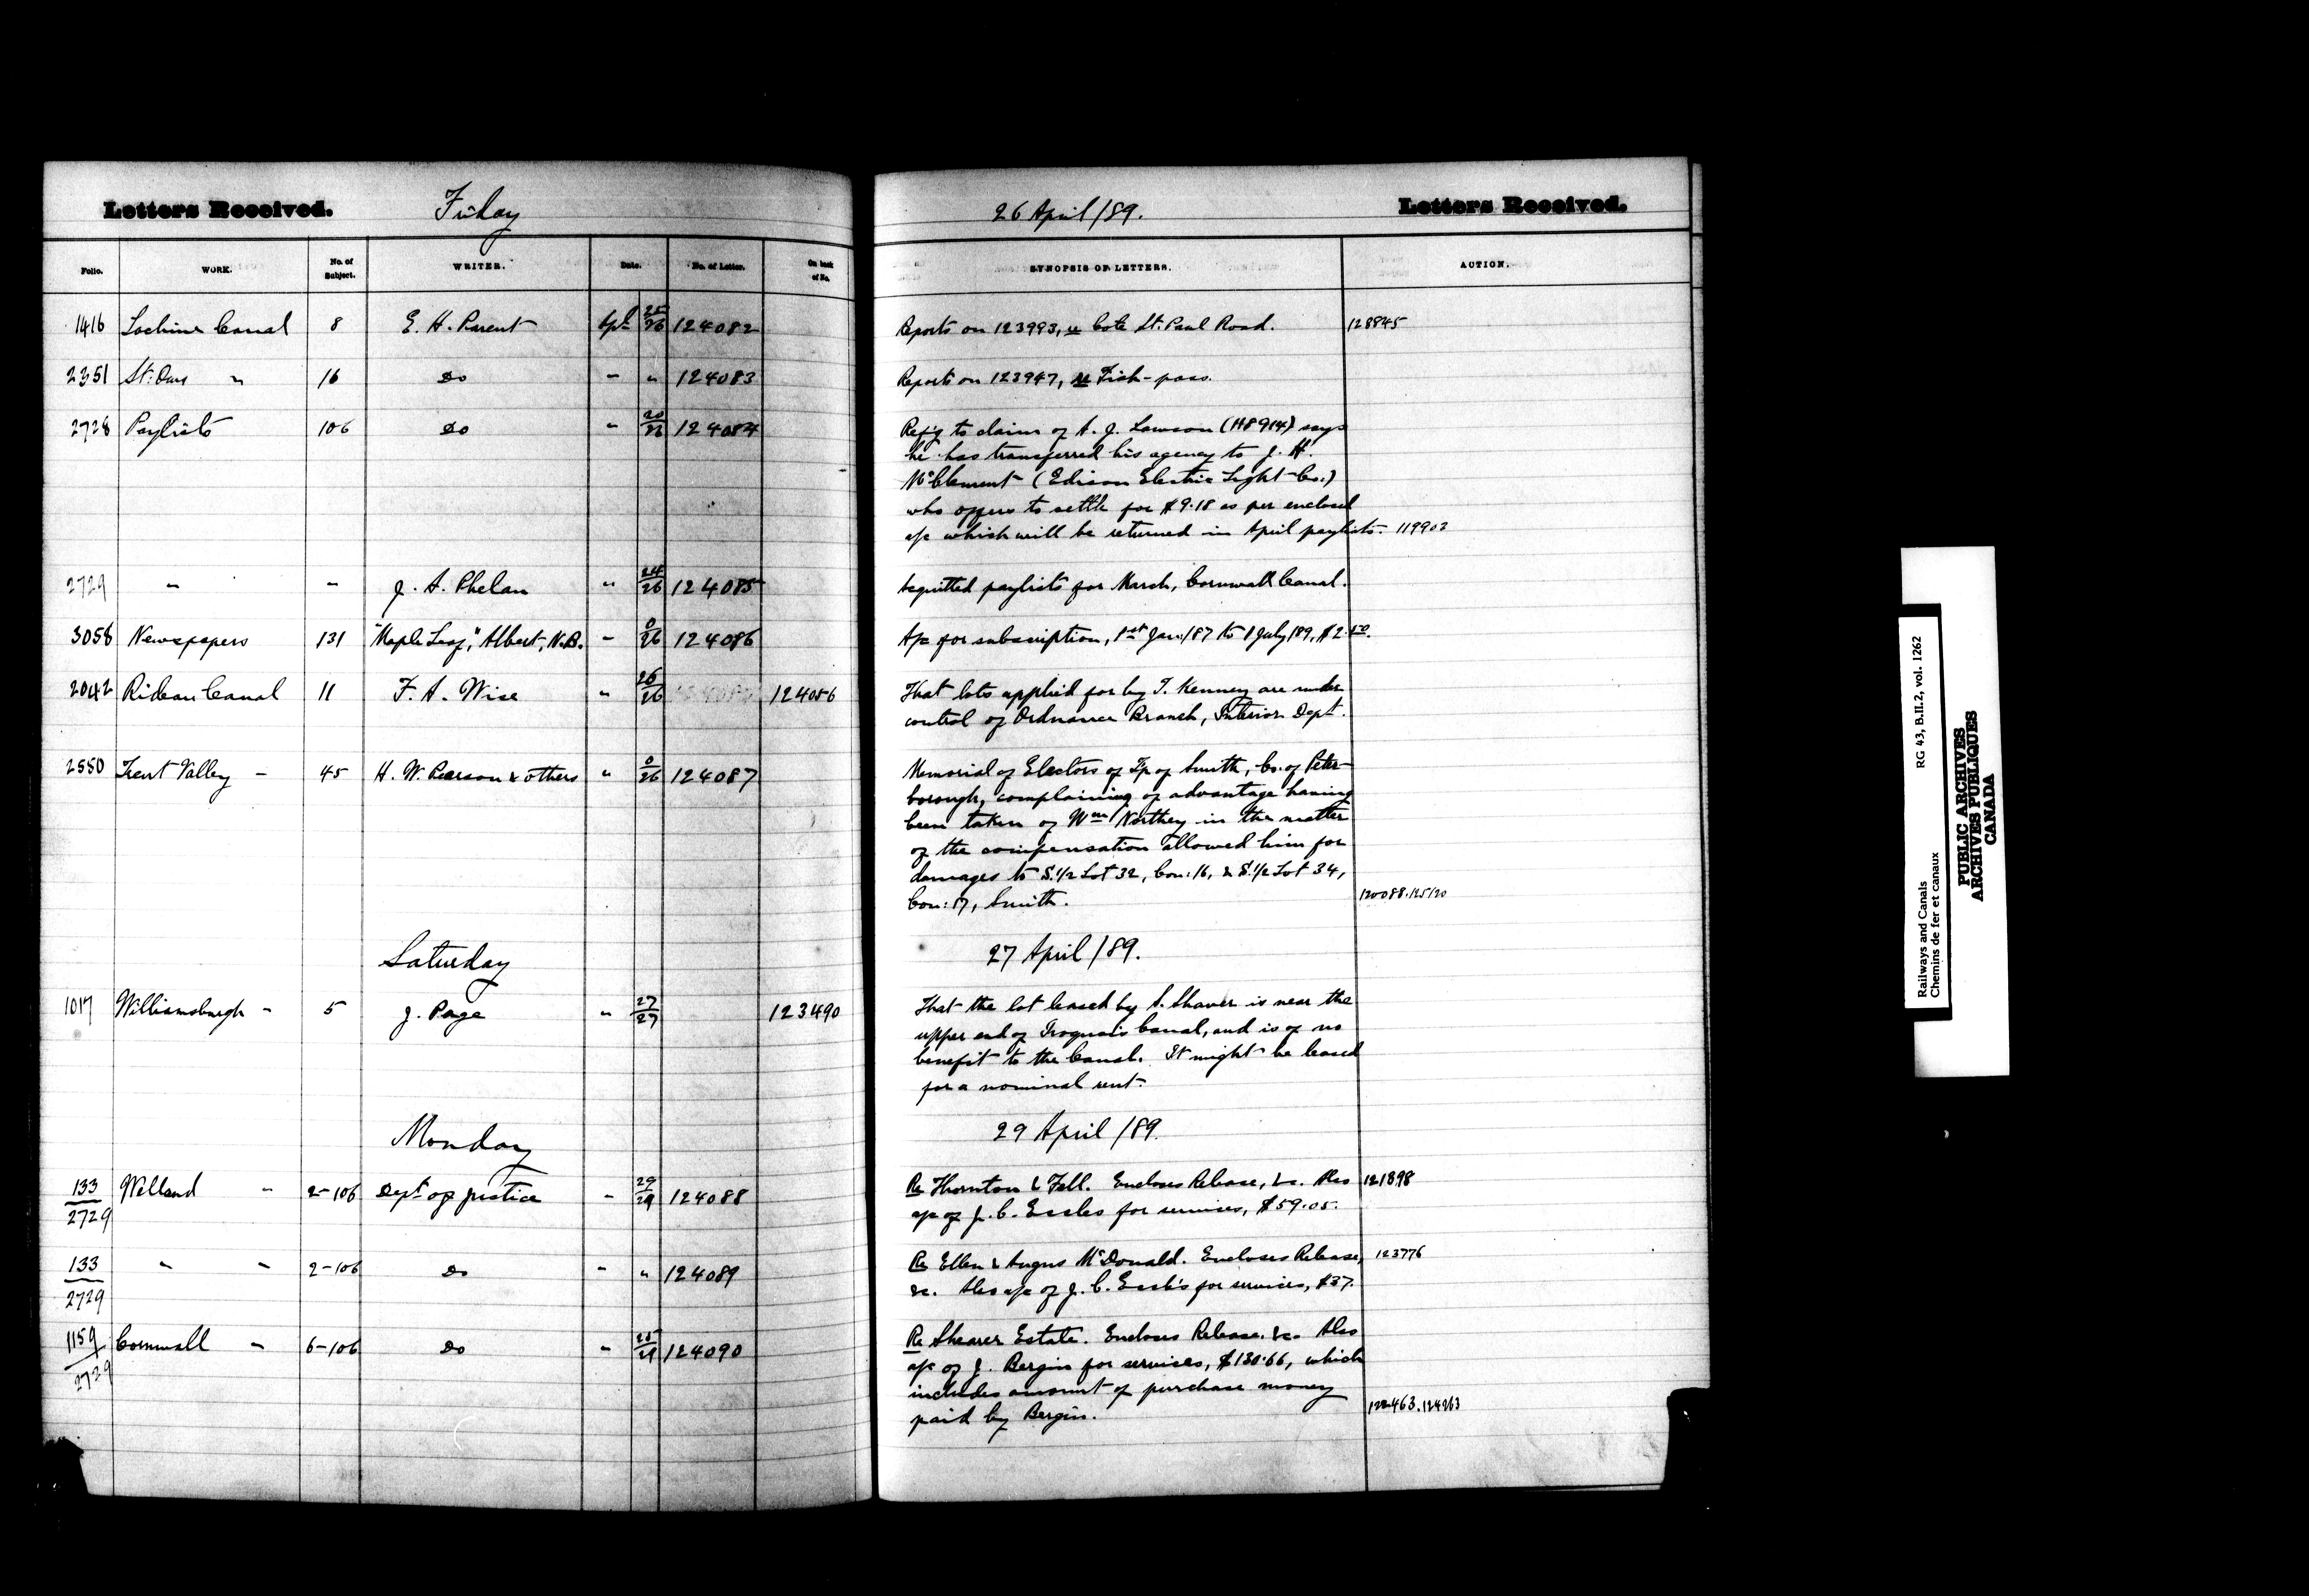 Letters Received. Friday 26 April /89. Letters Received.
Folio. WORK. No. of Subject. WRITER. Date. No. of Letter. On back of No. SYNOPSIS OF LETTERS. ACTION.
1416 Lachine Canal 8 E. H. Parent Apl 25/26 124082 Reports on 123993, re Cote St. Paul Road. 128845
2351 St. Ours " 16 Do " " 124083 Reports on 123947, re Fish-pass.
2728 Paylists 106 Do " 20/26 124084 Ref'g to claim of A. J. Lawson (118914) says
he has transferred his agency to J. H.
McClement (Edison Electric Light Co.)
who offers to settle for $9.18 as per enclosed
a/c which will be returned in April paylists. 119903
2729 " " J. A. Phelan " 24/26 124085 Acquitted paylists for March, Cornwall Canal.
3058 Newspapers 131 "Maple Leaf," Albert, N.B. " 0/26 124086 A/c for subscription, 1st Jan:/87 to 1 July/89, $2.50.
2042 Rideau Canal 11 F. A. Wise " 26/26 124056 That lots applied for by T. Kenney are under
control of Ordnance Branch, Interior Dept.
2550 Trent Valley " 45 H. W. Pearson & others " 0/26 124087 Memorial of Electors of Tp of Smith, Co. of Peter-
borough, complaining of advantage having
been taken of Wm Northey in the matter
of the compensation allowed him for
damages to S.1/2 Lot 32, Con: 16, & S.1/2 Lot 34,
Con: 17, Smith. 120088.125120
Saturday 27 April /89.
1017 Williamsburgh " 5 J. Page " 27/27 123490 That the lot leased by A. Shaver is near the
upper end of Iroquois Canal, and is of no
benefit to the Canal. It might be leased
for a nominal rent.
Monday 29 April /89.
133/2729 Welland " 2-106 Dept of Justice " 29/29 124088 Re Thornton & Fell. Encloses Release, &c. Also 121898
a/c of J. C. Eccles for services, $59.05.
133/2729 " " 2-106 Do " " 124089 Re Ellen & Angus McDonald. Encloses Release, 123776
&c. Also a/c of J. C. Eccles for services, $37.
1159/2729 Cornwall " 6-106 Do " 25/29 124090 Re Shearer Estate. Encloses Release. &c. Also
a/c of J. Bergin for services, $130.66, which
includes amount of purchase money
paid by Bergin. 122463.124263
Railways and Canals RG 43, B.II.2, vol. 1262
Chemins de fer et canaux
PUBLIC ARCHIVES
ARCHIVES PUBLIQUES
CANADA